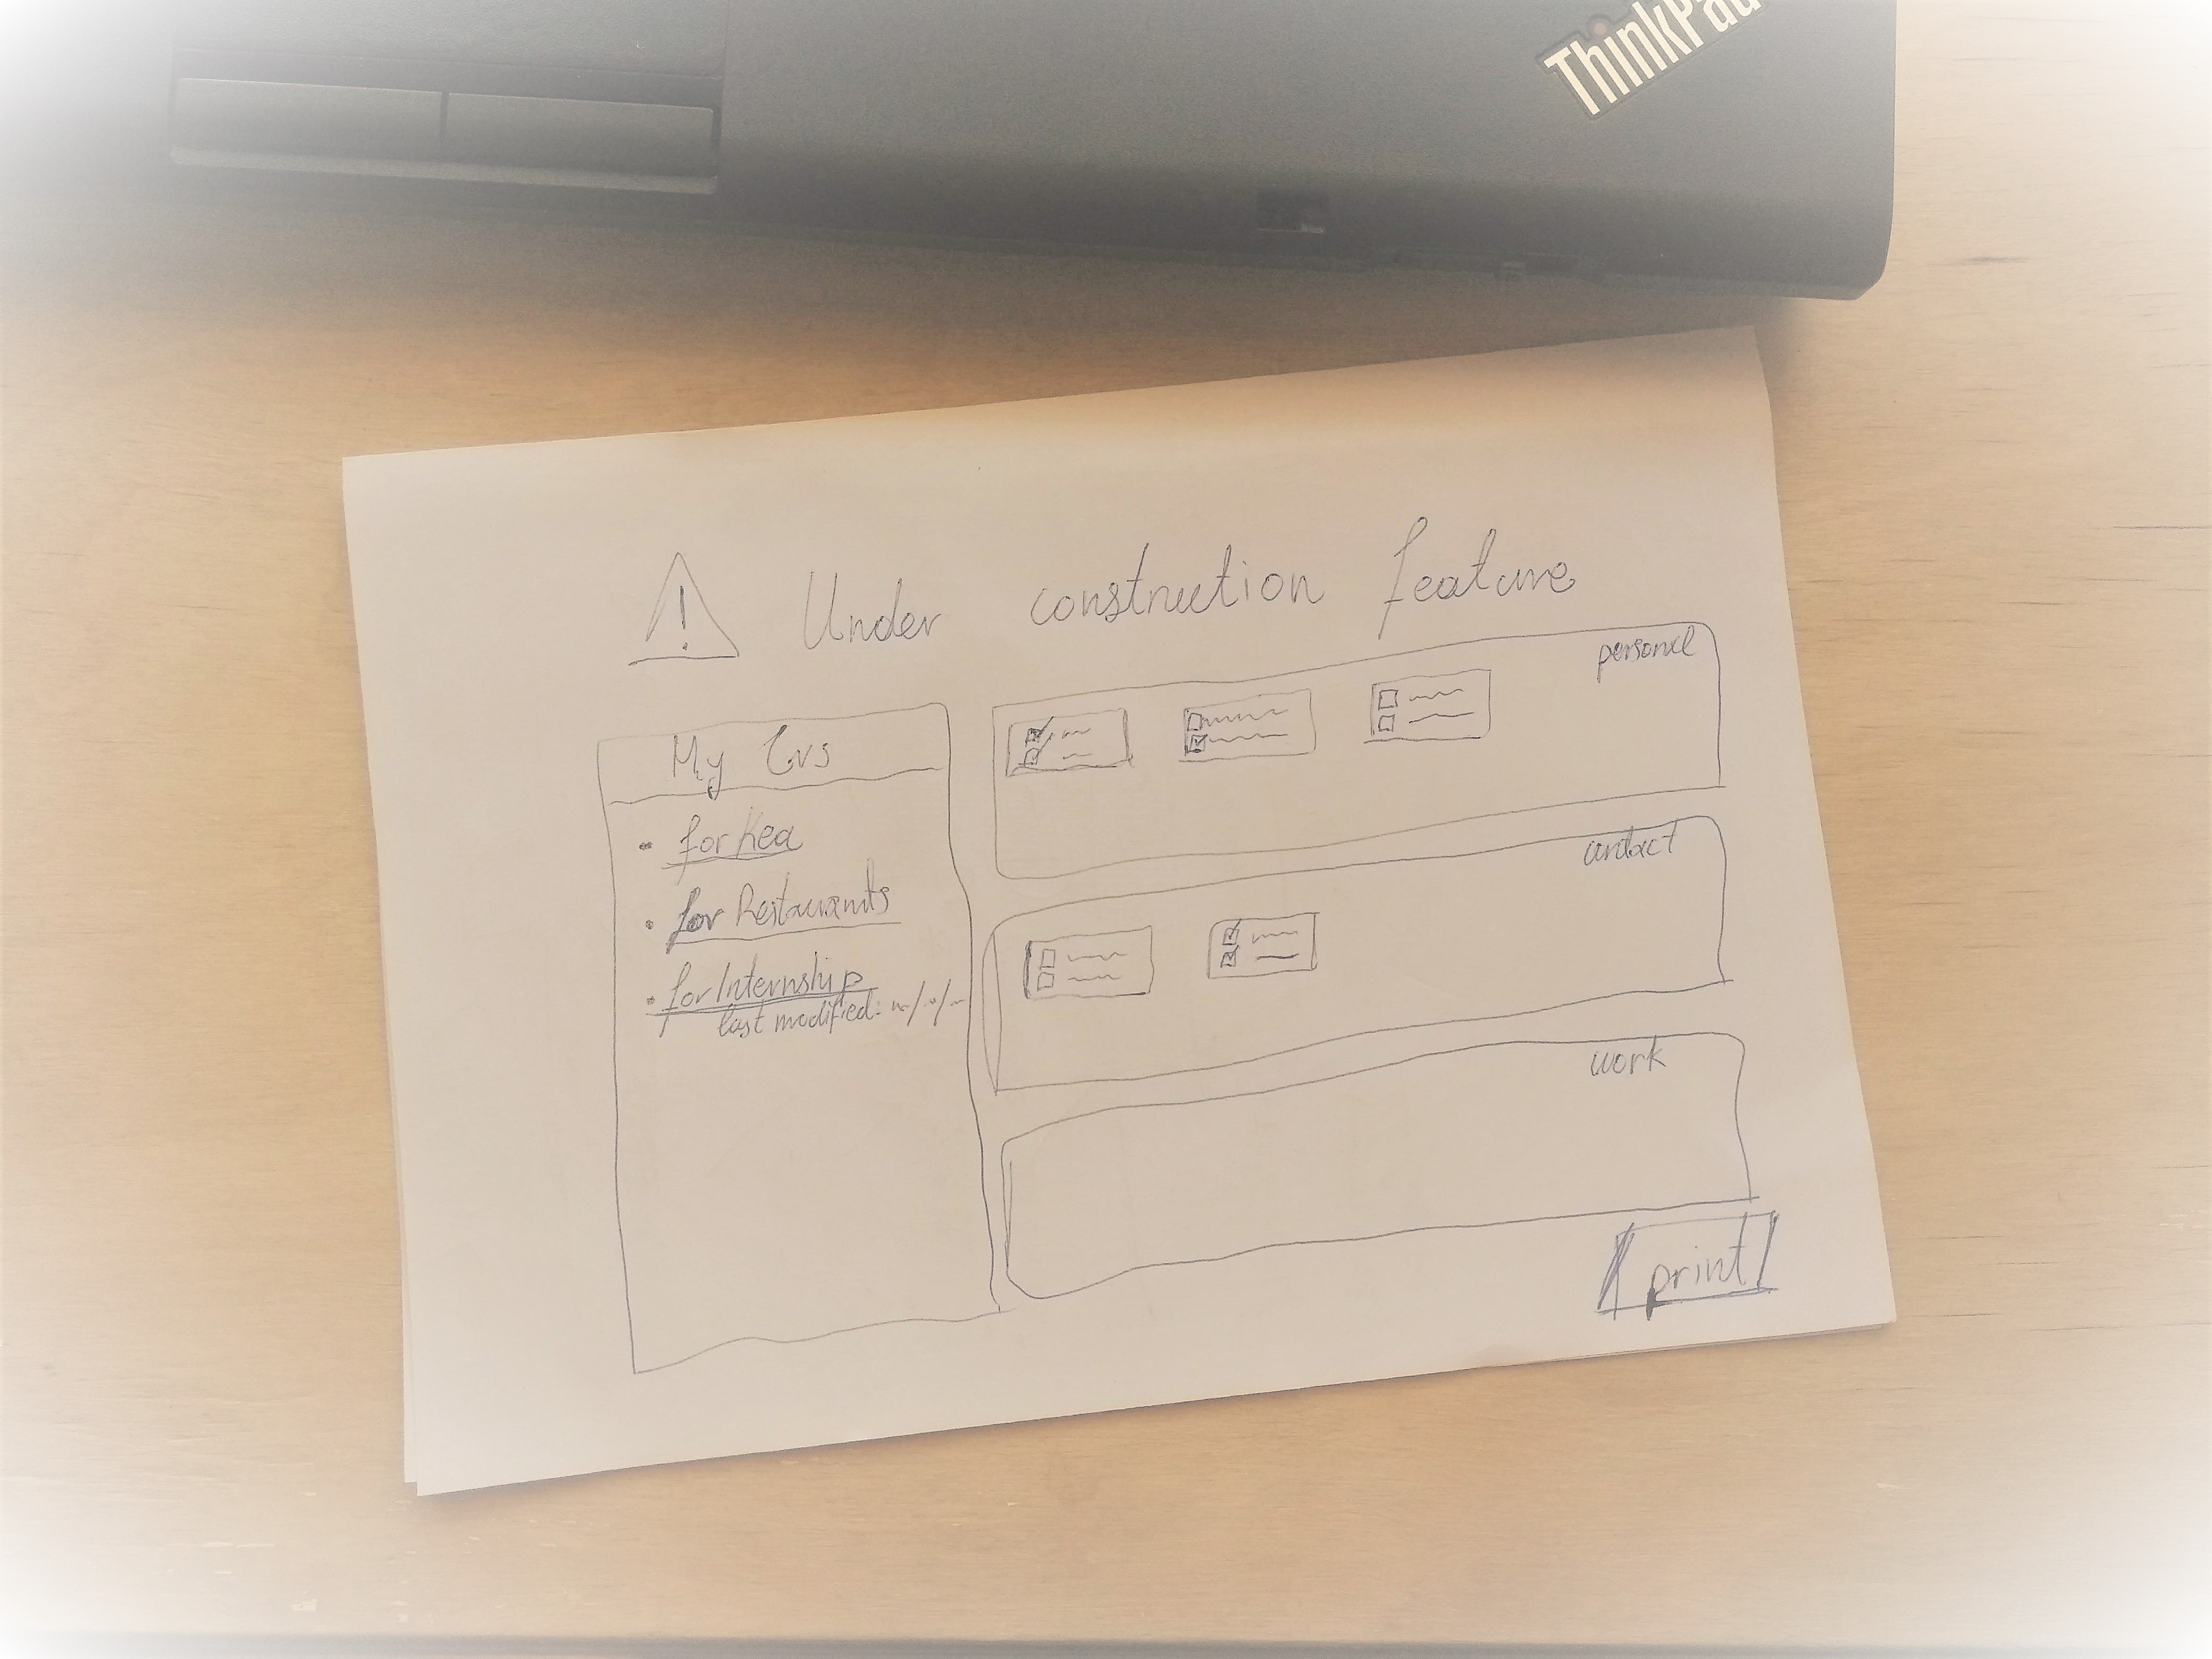 ThinkPad
! Under construction feature
My Cvs
for Kea
for Restaurants
for Internship
last modified:
personal
contact
work
print